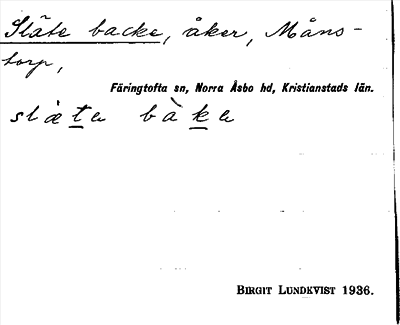 Släte backe, åker, Måns-
torp,
Färingtofta sn, Norra Åsbo hd, Kristianstads län.
slὰ̀te bàke
BIRGIT LUNDKVIST 1936.